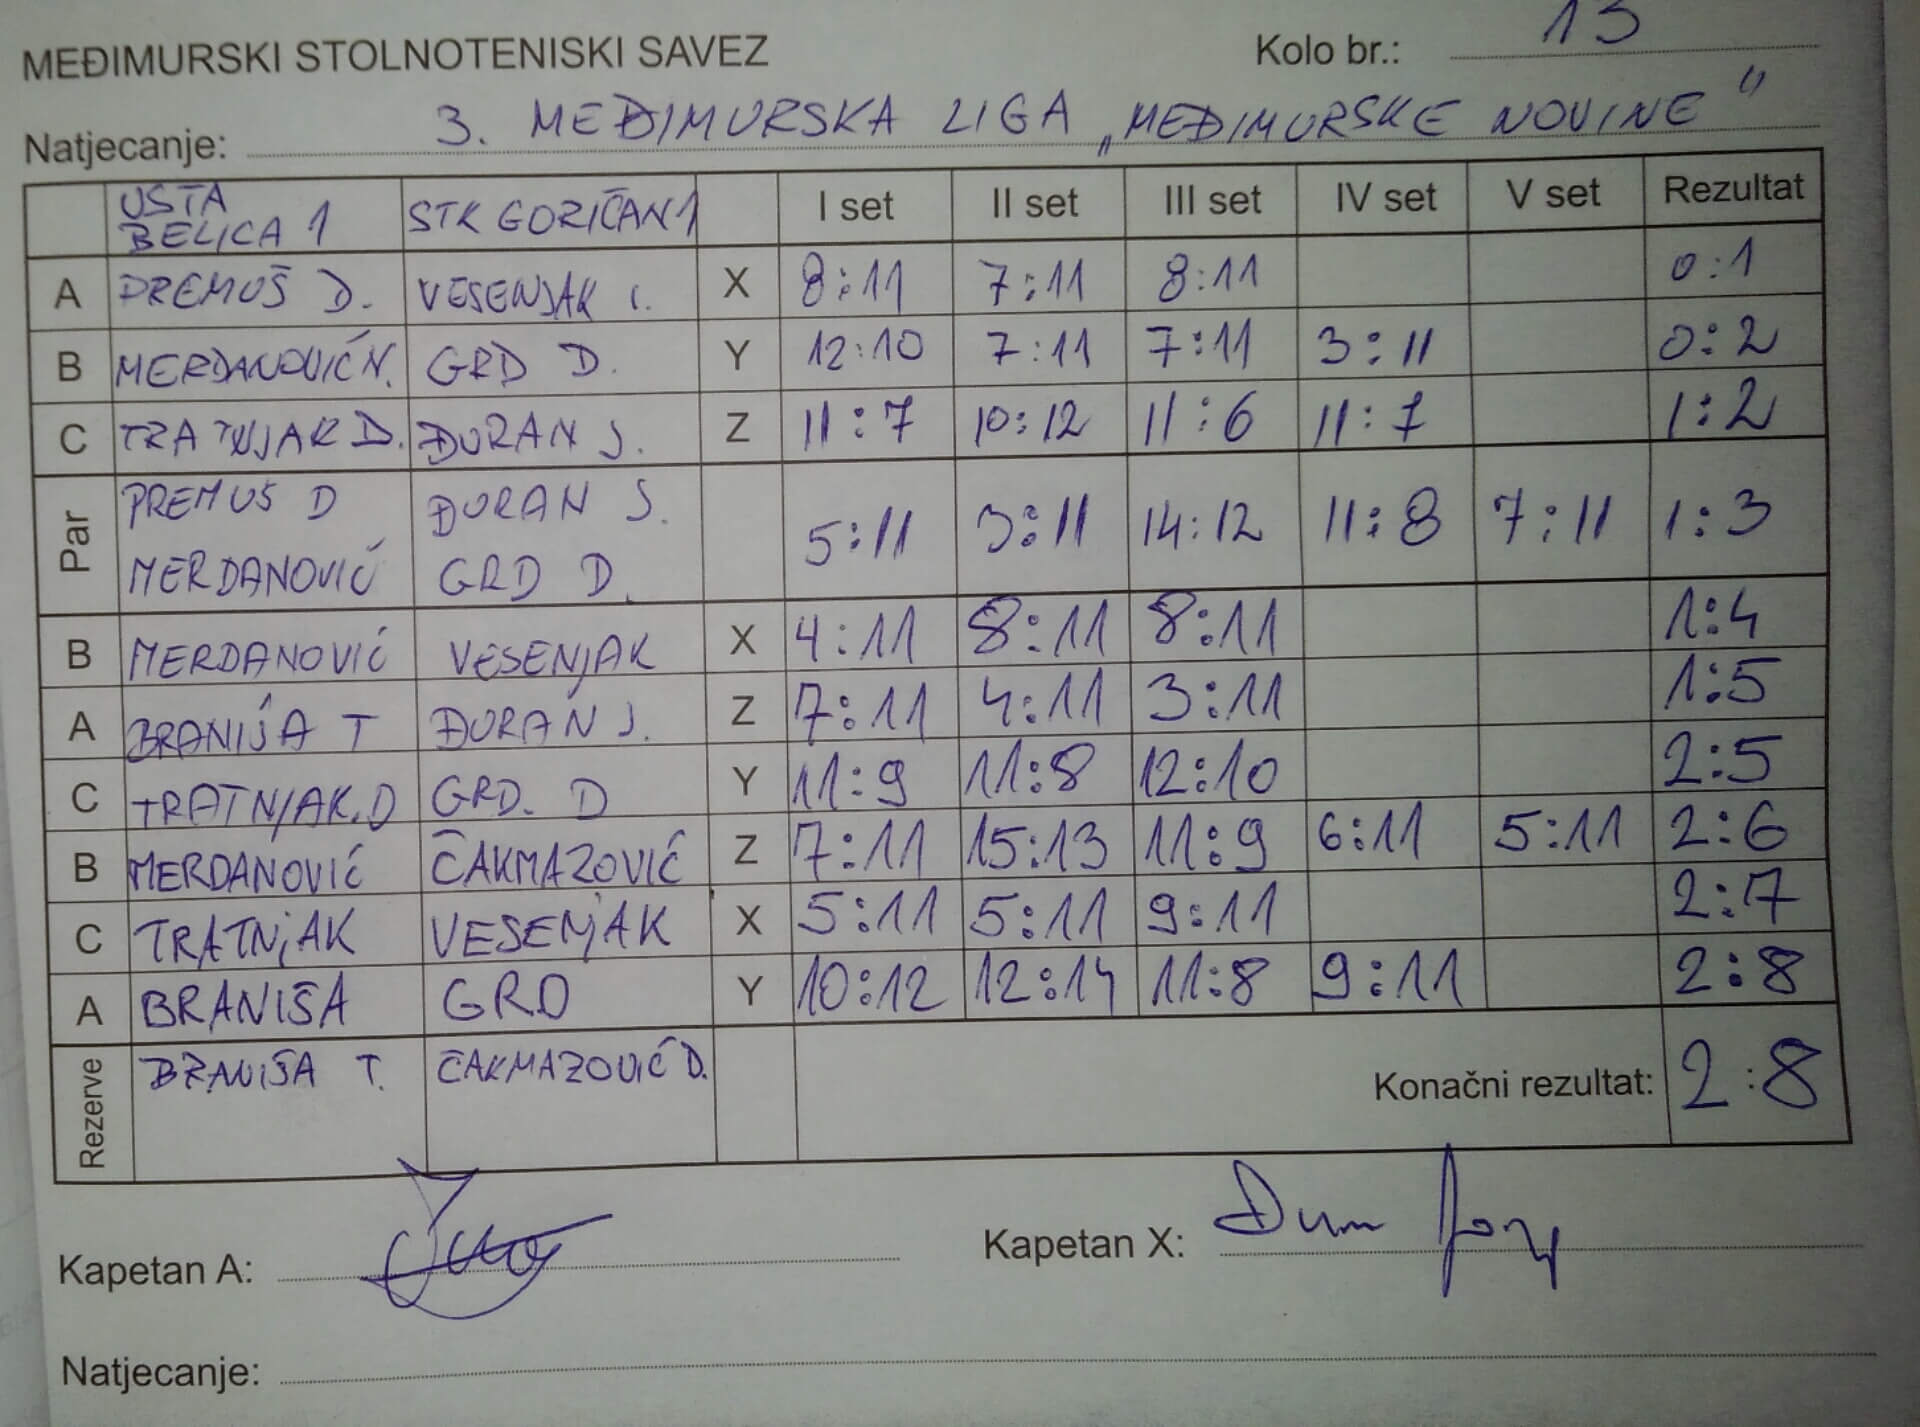 MEĐIMURSKI STOLNOTENISKI SAVEZ Kolo br.: 13
Natjecanje: 3. MEĐIMURSKA LIGA „MEĐIMURSKE NOVINE"
USTA BELICA 1 STK GORIČAN 1 I set II set III set IV set V set Rezultat
A PREMUŠ D. VESENJAK I. X 8:11 7:11 8:11 0:1
B MERDANOVIĆ N. GRD D. Y 12:10 7:11 7:11 3:11 0:2
C TRATNJAK D. ĐURAN J. Z 11:7 10:12 11:6 11:7 1:2
Par PREMUŠ D MERDANOVIĆ ĐURAN J. GRD D. 5:11 3:11 14:12 11:8 7:11 1:3
B MERDANOVIĆ VESENJAK X 4:11 8:11 8:11 1:4
A BRANIŠA T ĐURAN J. Z 7:11 4:11 3:11 1:5
C TRATNJAK.D GRD. D Y 11:9 11:8 12:10 2:5
B MERDANOVIĆ ČAKMAZOVIĆ Z 7:11 15:13 11:9 6:11 5:11 2:6
C TRATNJAK VESENJAK X 5:11 5:11 9:11 2:7
A BRANIŠA GRD Y 10:12 12:14 11:8 9:11 2:8
Rezerve BRANIŠA T. ČAKMAZOVIĆ D. Konačni rezultat: 2:8
Kapetan A: Kapetan X:
Natjecanje: